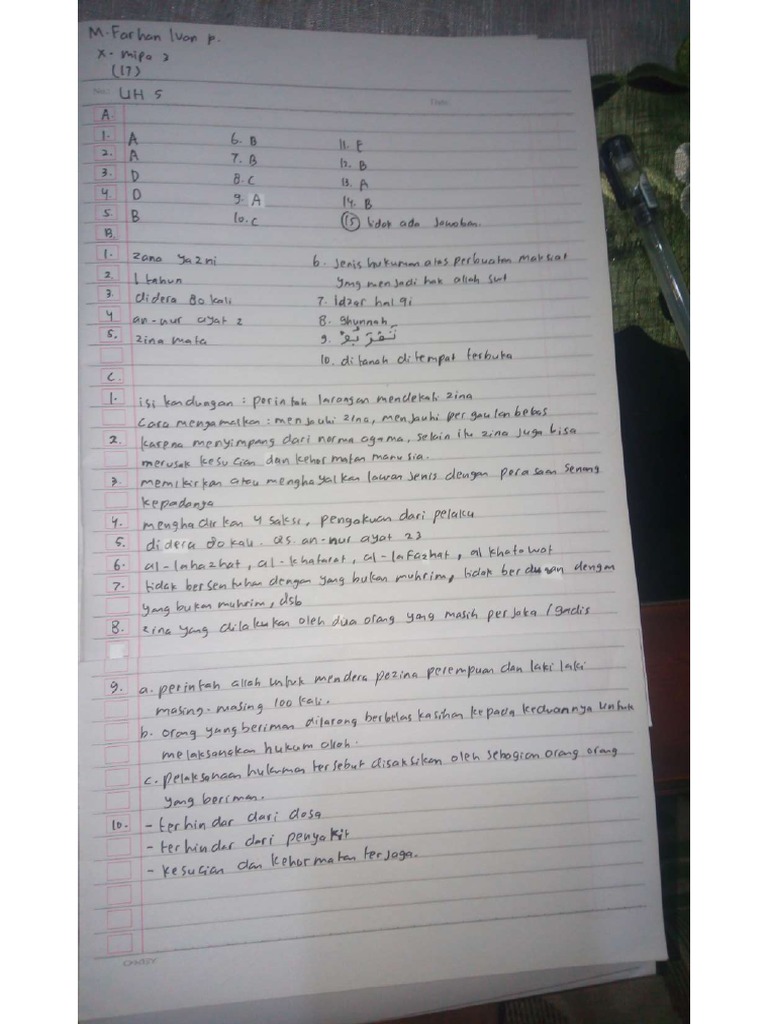 M. Farhan Ivan p.
X - mipa 2
(17)
No.:
Date:
UH 5
A.
1. A
2. A
3. D
4. D
5. B
6. B
7. B
8. C
9. A
10. C
11. E
12. B
13. A
14. B
15 tidak ada jawaban.
B.
1. zana yazni
2. 1 tahun
3. didera 80 kali
4 an-nur ayat 2
5. zina mata
6. jenis hukuman atas perbuatan maksiat
yang menjadi hak allah swt
7. Idzar hal 91
8. Shunnah
9. تَقْرَبُوْ
10. ditanah ditempat terbuka
C.
1. isi kandungan : perintah larangan mendekati zina
Cara mengamalkan : menjauhi zina, menjauhi pergaulan bebas
2. karena menyimpang dari norma agama, selain itu zina juga bisa
merusak kesucian dan kehormatan manusia.
3. memikirkan atau menghayalkan lawan jenis dengan perasaan senang
kepadanya
4. menghadirkan 4 saksi, pengakuan dari pelaku
5. didera 80 kali. QS. an-nur ayat 23
6. al-lahazhat, al-khatarat, al-lafazhat, al khatowat
7. tidak bersentuhan dengan yang bukan muhrim, tidak berduaan dengan
yang bukan muhrim, dsb
8. zina yang dilakukan oleh dua orang yang masih perjaka / gadis
9. a. perintah allah untuk mendera pezina perempuan dan laki laki
masing-masing 100 kali.
b. orang yang beriman dilarang berbelas kasihan kepada keduannya untuk
melaksanakan hukum allah.
c. pelaksanaan hukuman tersebut disaksikan oleh sebagian orang orang
yang beriman.
10. - terhindar dari dosa
- terhindar dari penyakit
- kesucian dan kehormatan terjaga.